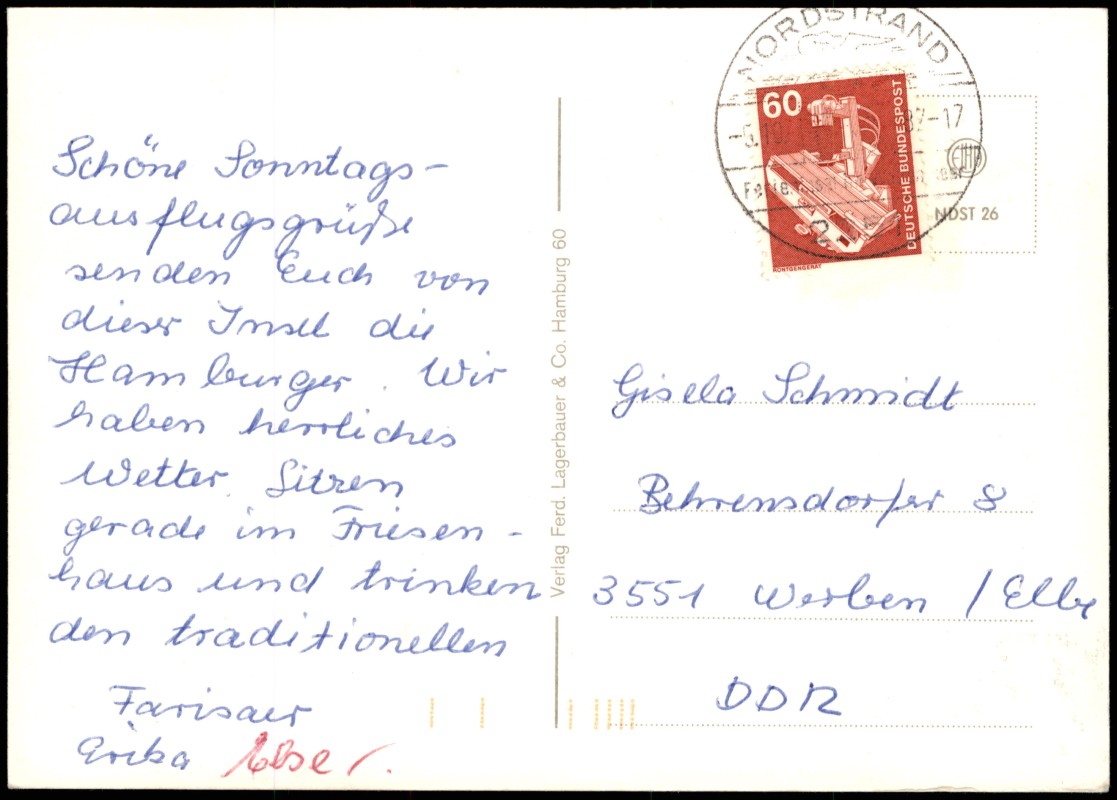 Schöne Sonntags-
ausflugsgrüße
senden Euch von
dieser Insel die
Hamburger. Wir
haben herrliches
Wetter. Sitzen
gerade im Friesen-
haus und trinken
den traditionellen
Farisaer
Erika
Verlag Ferd. Lagerbauer & Co. Hamburg 60
NORDSTRAND
87-17
60
DEUTSCHE BUNDESPOST
RÖNTGENGERÄT
NDST 26
Gisela Schmidt
Behrensdorfer 8
3551 Werben / Elbe
DDR